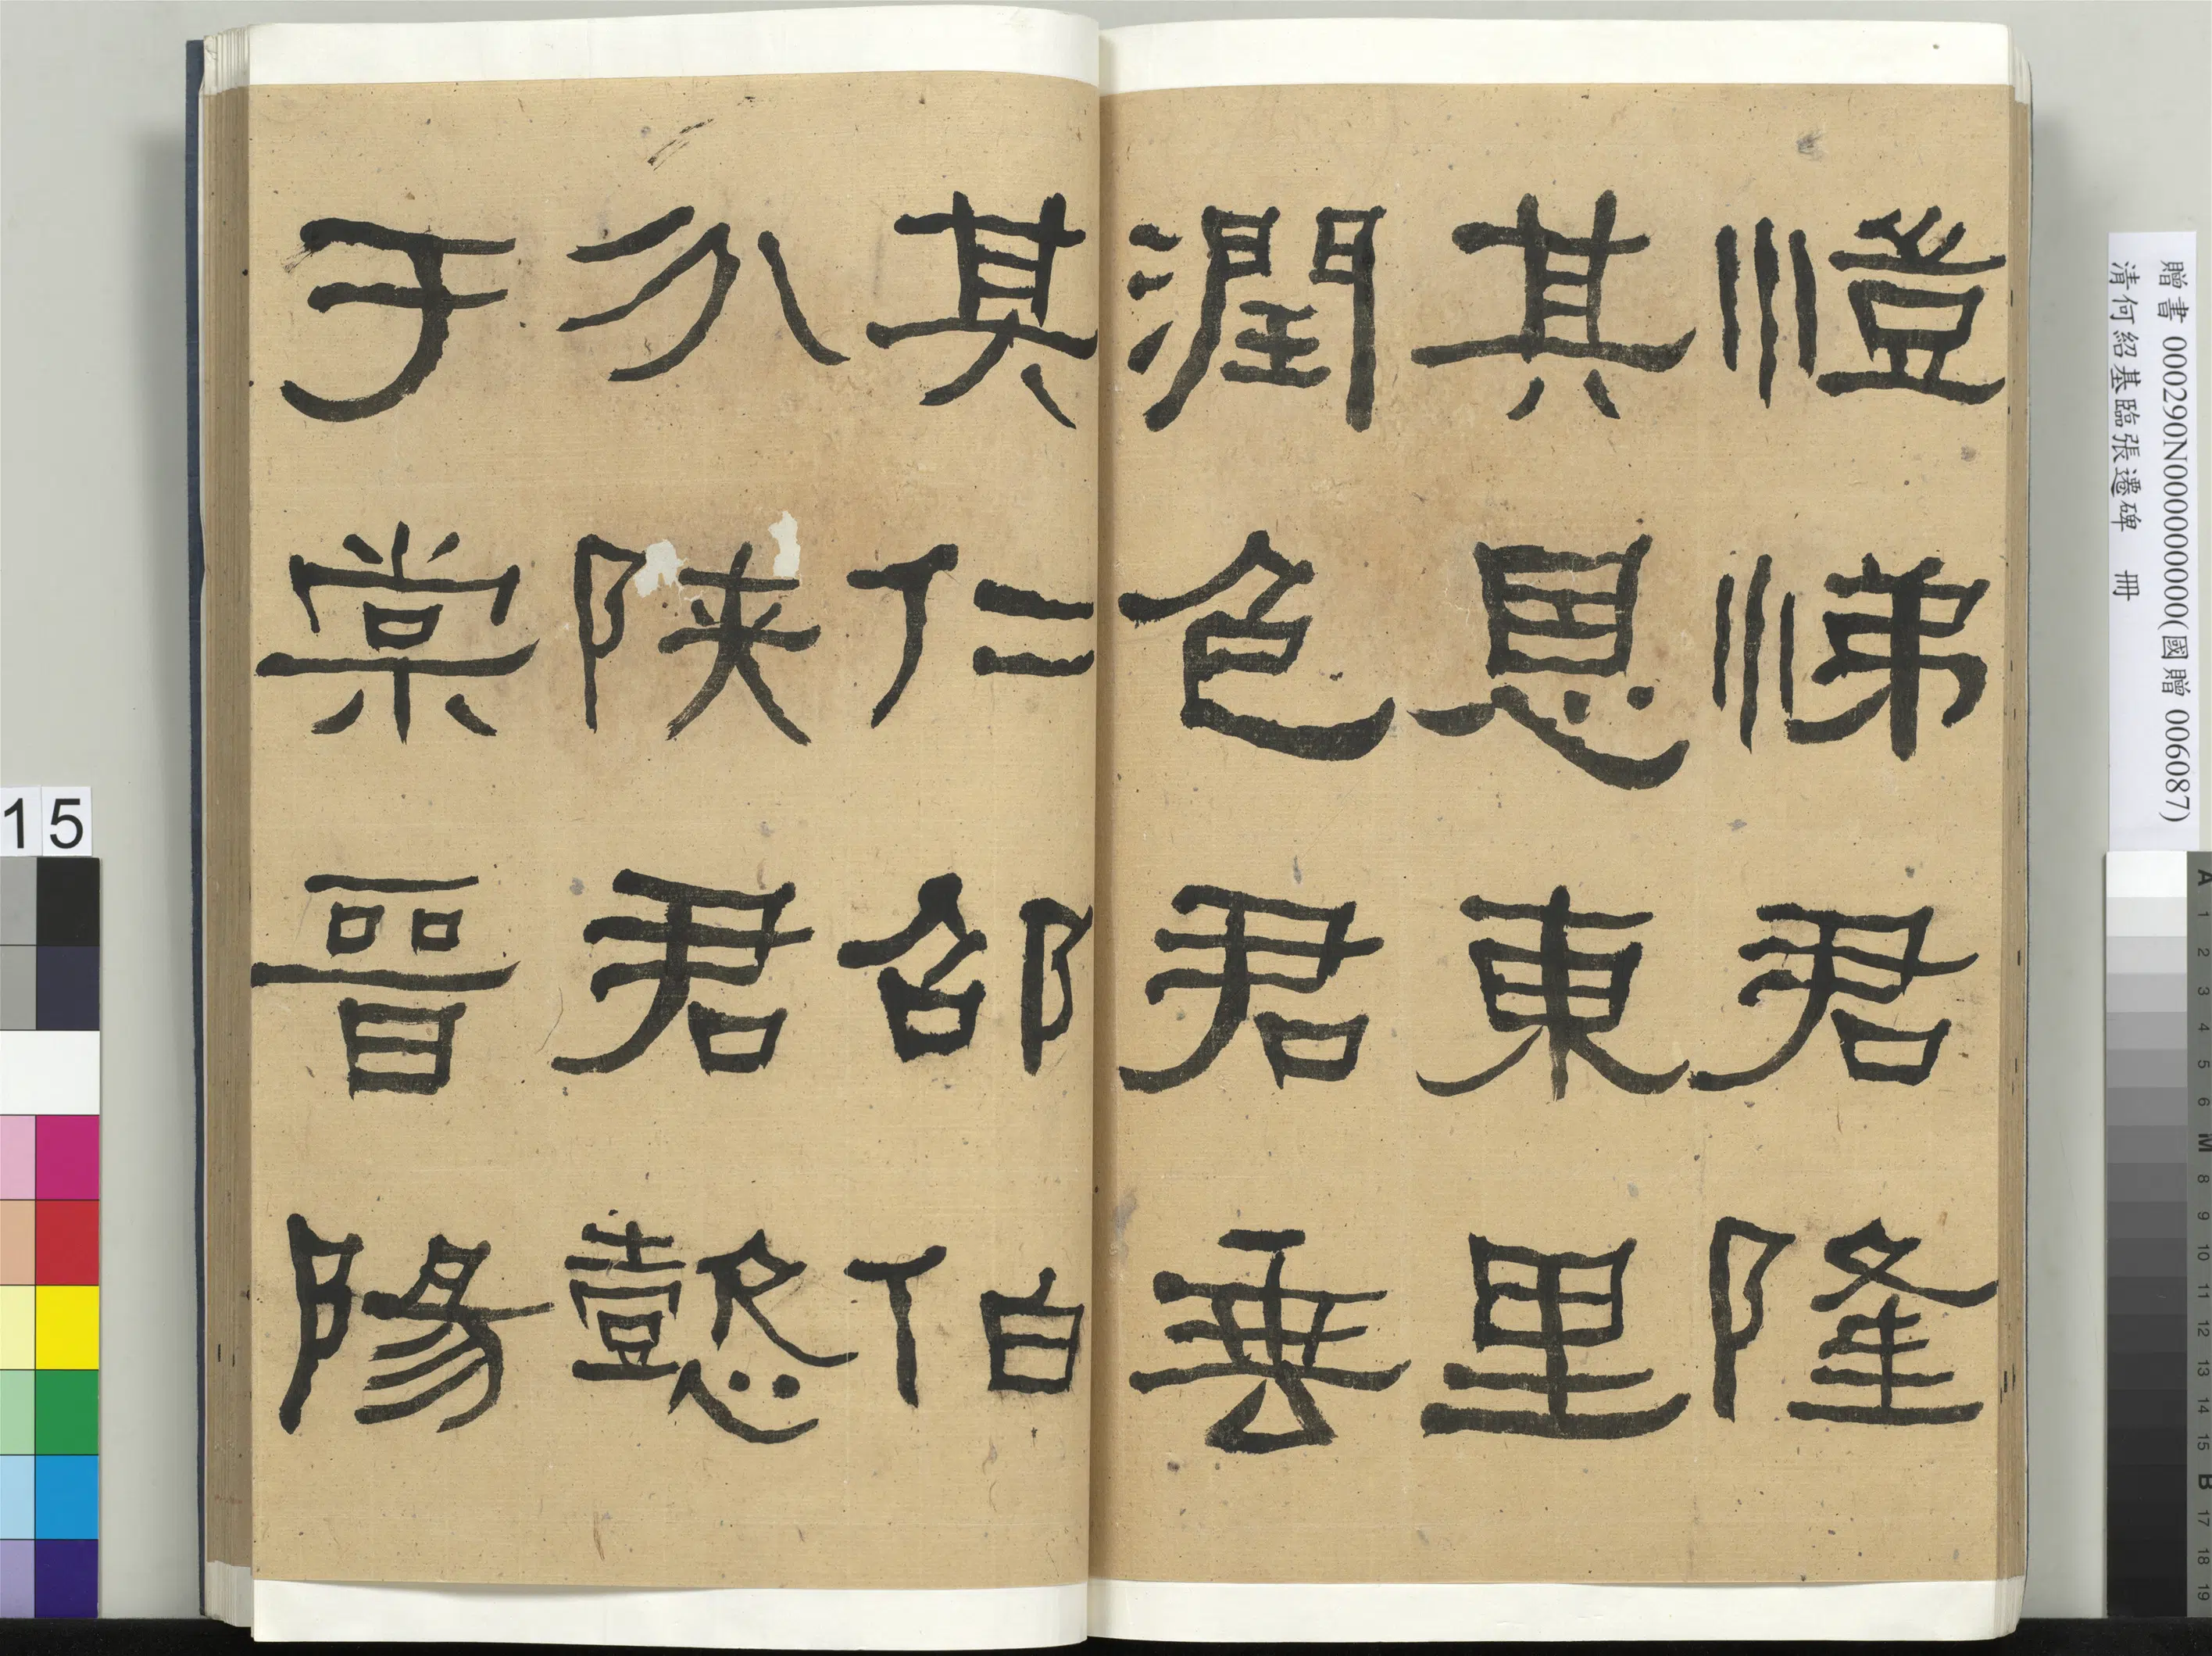 愷悌君隆
其恩東里
潤色君垂
其仁邵伯
分陝君懿
于棠晉陽
贈書 000290N000000000(國贈 006087)
清何紹基臨張遷碑 冊
15
A 1 2 3 4 5 6 M 8 9 10 11 12 13 14 15 B 17 18 19